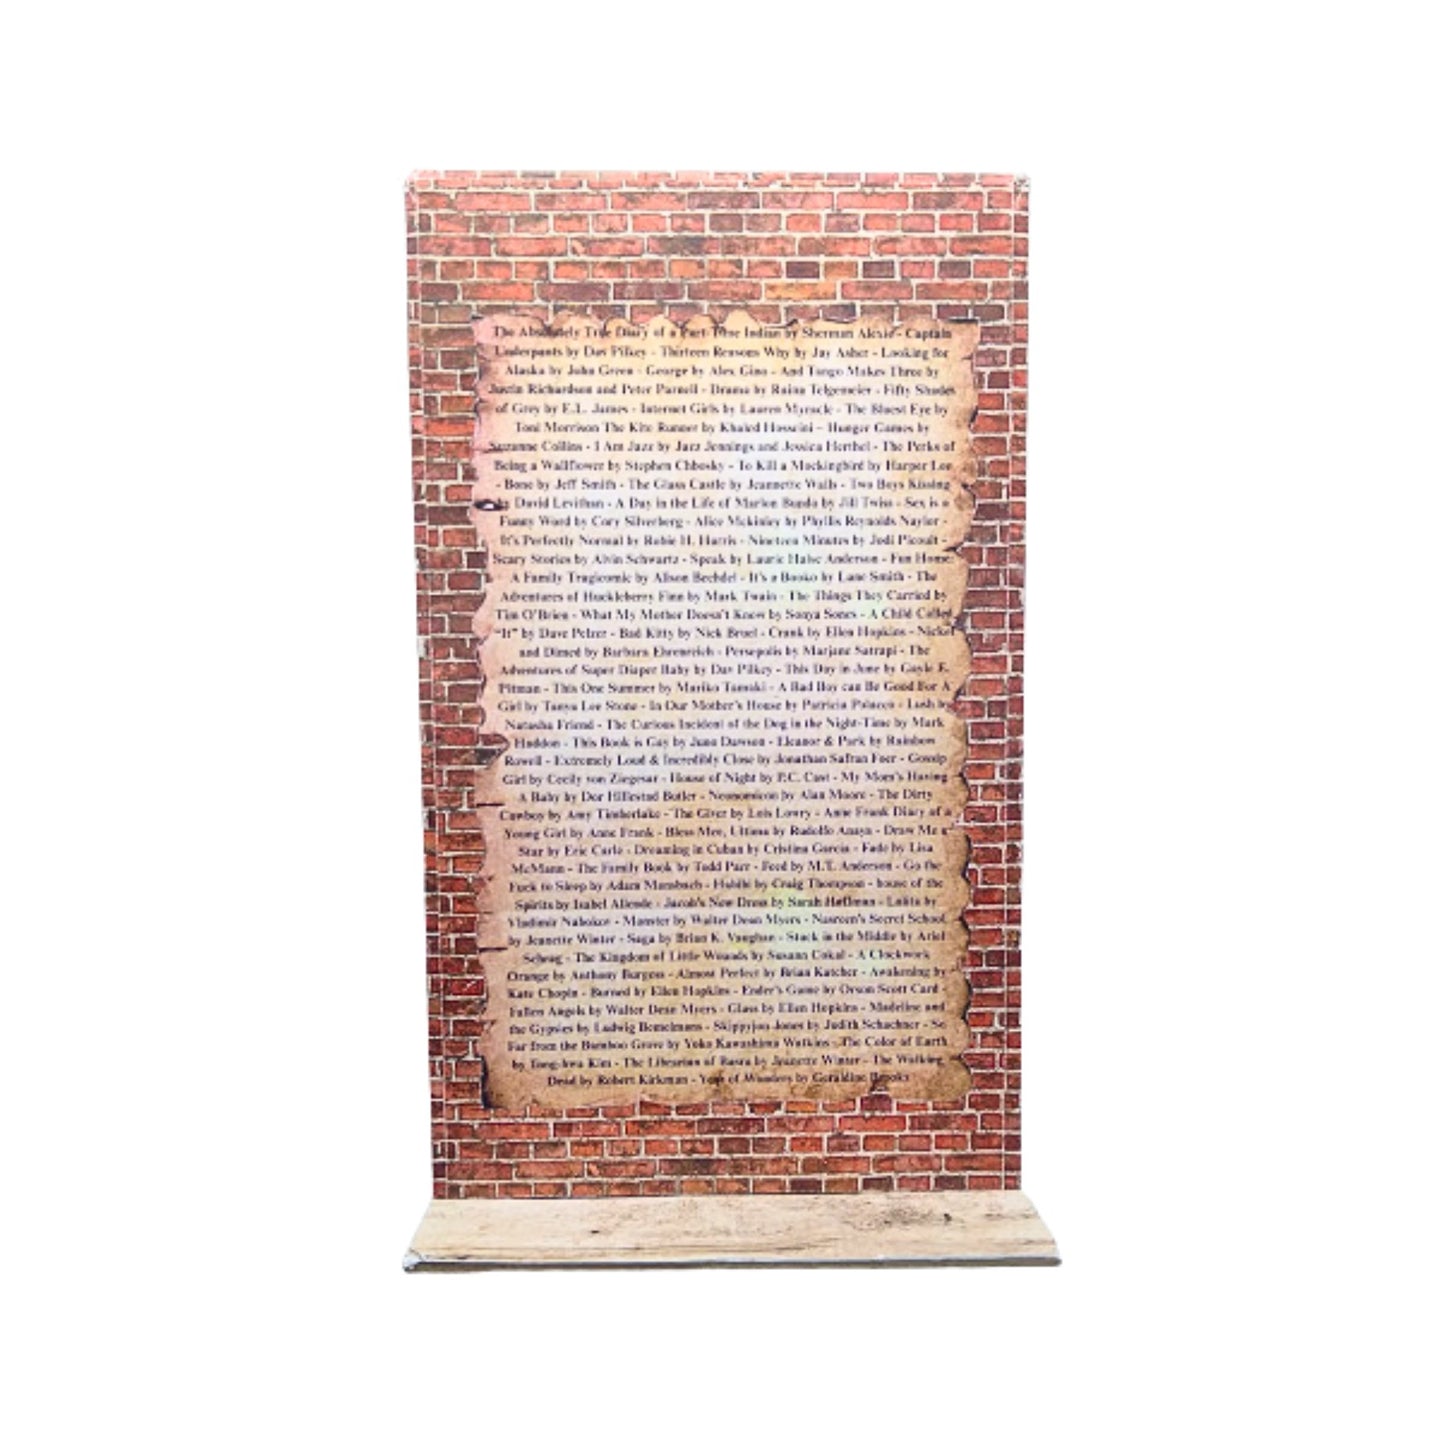 The Absolutely True Diary of a Part-Time Indian by Sherman Alexie - Captain
Underpants by Dav Pilkey - Thirteen Reasons Why by Jay Asher - Looking for
Alaska by John Green - George by Alex Gino - And Tango Makes Three by
Justin Richardson and Peter Parnell - Drama by Raina Telgemeier - Fifty Shades
of Grey by E.L. James - Internet Girls by Lauren Myracle - The Bluest Eye by
Toni Morrison The Kite Runner by Khaled Hosseini - Hunger Games by
Suzanne Collins - I Am Jazz by Jazz Jennings and Jessica Herthel - The Perks of
Being a Wallflower by Stephen Chbosky - To Kill a Mockingbird by Harper Lee
- Bone by Jeff Smith - The Glass Castle by Jeannette Walls - Two Boys Kissing
by David Levithan - A Day in the Life of Marlon Bundo by Jill Twiss - Sex is a
Funny Word by Cory Silverberg - Alice Mckinley by Phyllis Reynolds Naylor -
It's Perfectly Normal by Robie H. Harris - Nineteen Minutes by Jodi Picoult -
Scary Stories by Alvin Schwartz - Speak by Laurie Halse Anderson - Fun Home:
A Family Tragicomic by Alison Bechdel - It's a Booko by Lane Smith - The
Adventures of Huckleberry Finn by Mark Twain - The Things They Carried by
Tim O'Brien - What My Mother Doesn't Know by Sonya Sones - A Child Called
"It" by Dave Pelzer - Bad Kitty by Nick Bruel - Crank by Ellen Hopkins - Nickel
and Dimed by Barbara Ehrenreich - Persepolis by Marjane Satrapi - The
Adventures of Super Diaper Baby by Dav Pilkey - This Day in June by Gayle E.
Pitman - This One Summer by Mariko Tamaki - A Bad Boy can Be Good For A
Girl by Tanya Lee Stone - In Our Mother's House by Patricia Polacco - Lush by
Natasha Friend - The Curious Incident of the Dog in the Night-Time by Mark
Haddon - This Book is Gay by Juno Dawson - Eleanor & Park by Rainbow
Rowell - Extremely Loud & Incredibly Close by Jonathan Safran Foer - Gossip
Girl by Cecily von Ziegesar - House of Night by P.C. Cast - My Mom's Having
A Baby by Dor Hillestad Butler - Neonomicon by Alan Moore - The Dirty
Cowboy by Amy Timberlake - The Giver by Lois Lowry - Anne Frank Diary of a
Young Girl by Anne Frank - Bless Mee, Ultima by Rudolfo Anaya - Draw Me a
Star by Eric Carle - Dreaming in Cuban by Cristina Garcia - Fade by Lisa
McMann - The Family Book by Todd Parr - Feed by M.T. Anderson - Go the
Fuck to Sleep by Adam Mansbach - Habibi by Craig Thompson - house of the
Spirits by Isabel Allende - Jacob's New Dress by Sarah Hoffman - Lolita by
Vladimir Nabokov - Monster by Walter Dean Myers - Nasreen's Secret School
by Jeanette Winter - Saga by Brian K. Vaughan - Stuck in the Middle by Ariel
Schrag - The Kingdom of Little Wounds by Susann Cokal - A Clockwork
Orange by Anthony Burgess - Almost Perfect by Brian Katcher - Awakening by
Kate Chopin - Burned by Ellen Hopkins - Ender's Game by Orson Scott Card -
Fallen Angels by Walter Dean Myers - Glass by Ellen Hopkins - Madeline and
the Gypsies by Ludwig Bemelmans - Skippyjon Jones by Judith Schachner - So
Far from the Bamboo Grove by Yoko Kawashima Watkins - The Color of Earth
by Tong-hwa Kim - The Librarian of Basra by Jeanette Winter - The Walking
Dead by Robert Kirkman - Year of Wonders by Geraldine Brooks